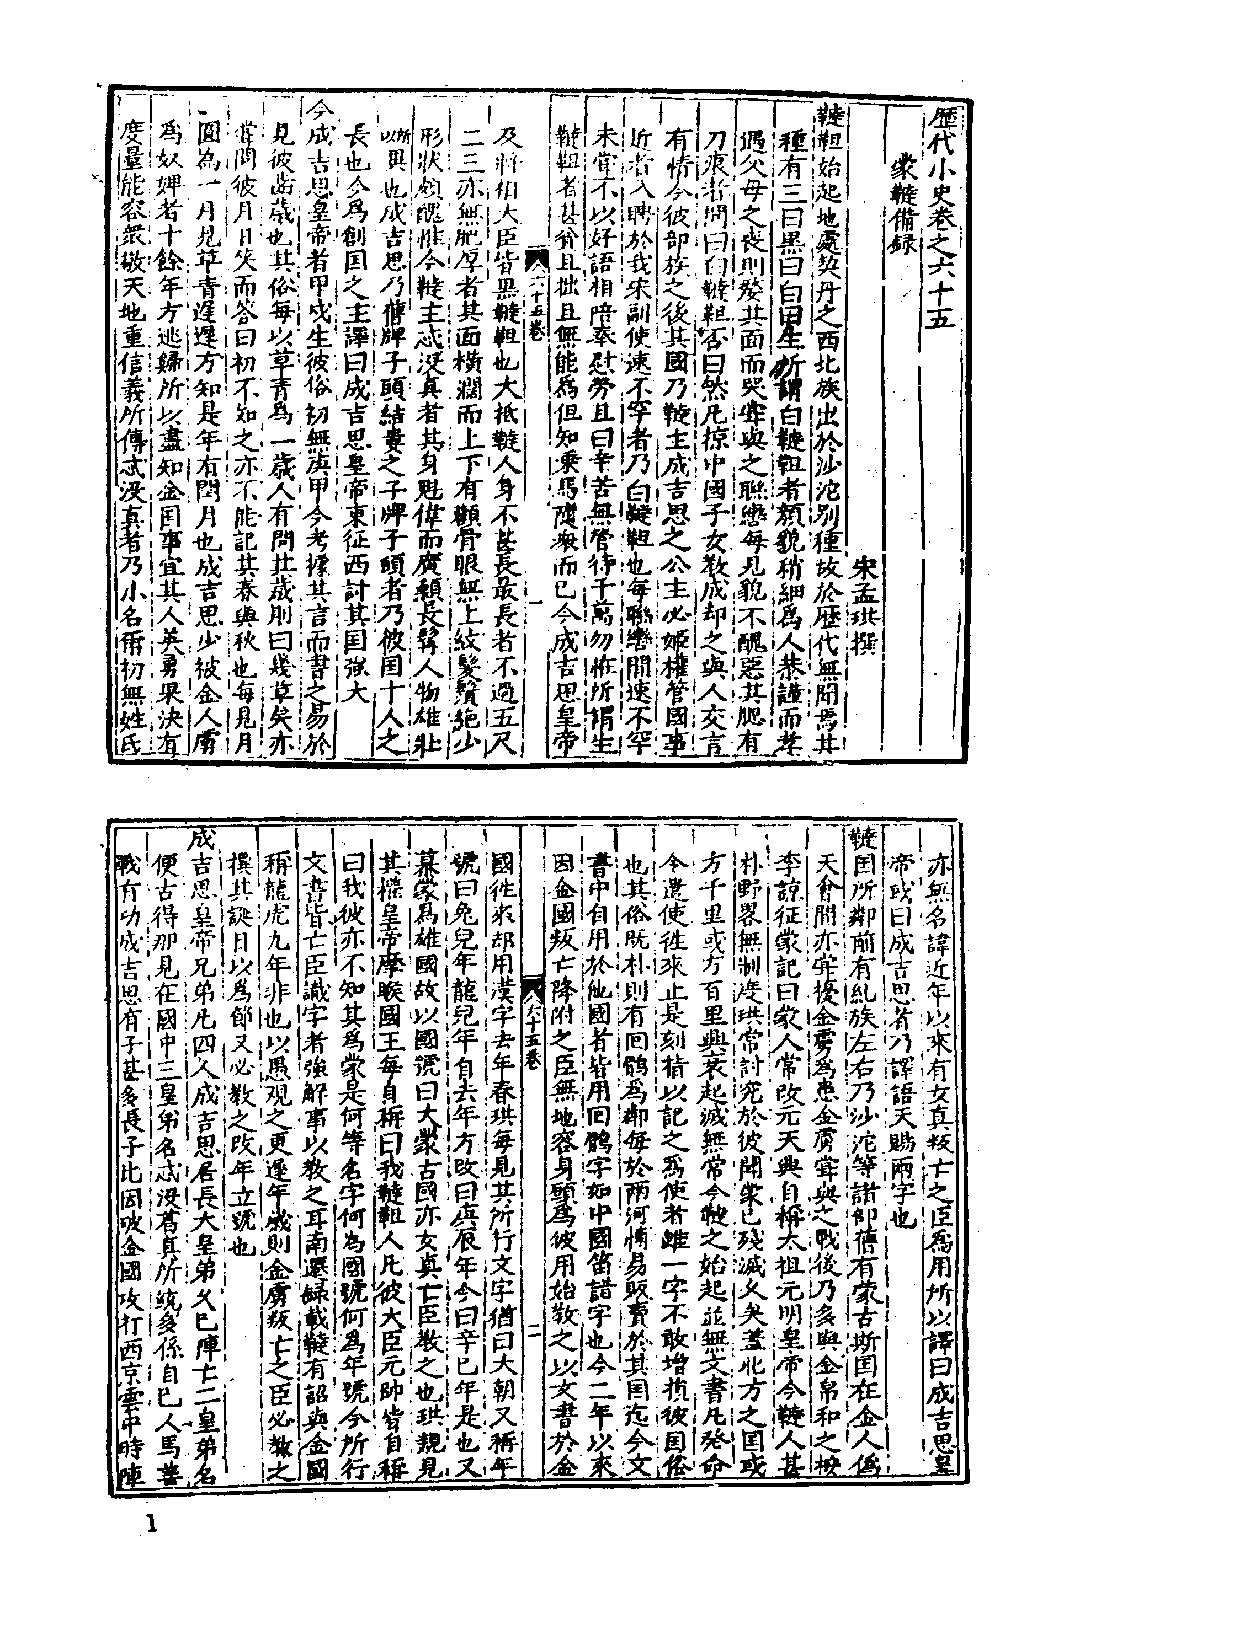 歷代小史卷之六十五
蒙韃備録
宋孟珙撰
韃靼始起地處契丹之西北族出於沙沱別種故於歷代無聞焉其
種有三曰黑曰白曰生所謂白韃靼者顏貌稍細爲人恭謹而孝
遇父母之喪則剺其面而哭嘗與之聯轡每見貌不醜惡其腮有
刀痕者問曰白韃靼否曰然凡掠中國子女教成却之與人交言
有情今彼部族之後其國乃韃主成吉思之公主必姬權管國事
近者入聘於我宋副使速不罕者乃白韃靼也每聯轡間速不罕
未嘗不以好語相陪奉慰勞且曰辛苦無管待千萬勿怪所謂生
韃靼者甚貧且拙且無能爲但知乘馬隨衆而已今成吉思皇帝
六十五卷
一
及將相大臣皆黑韃靼也大抵韃人身不甚長最長者不過五尺
二三亦無肥厚者其面橫濶而上下有顴骨眼無上紋髮鬚絶少
形狀頗醜惟今韃主忒没真者其身魁偉而廣顙長髯人物雄壯
所以異也成吉思乃舊牌子頭結婁之子牌子頭者乃彼国十人之
長也今爲創国之主譯曰成吉思皇帝東征西討其国強大
今成吉思皇帝者甲戌生彼俗初無庚甲今考據其言而書之易於
見彼齒歲也其俗每以草青爲一歲人有問其歲則曰幾草矣亦
嘗問彼月日笑而答曰初不知之亦不能記其春與秋也每見月
圓為一月見草青遲遲方知是年有閏月也成吉思少被金人虜
爲奴婢者十餘年方逃歸所以盡知金国事宜其人英勇果决有
度量能容衆敬天地重信義所傳忒没真者乃小名爾初無姓氏
亦無名諱近年以來有女真叛亡之臣爲用所以譯曰成吉思皇
帝或曰成吉思者乃譯語天賜兩字也
韃国所鄰前有糺族左右乃沙沱等諸部舊有蒙古斯国在金人僞
天會間亦嘗擾金虜爲患金虜嘗與之戰後乃多與金帛和之按
李諒征蒙記曰蒙人常改元天興自稱太祖元明皇帝今韃人甚
朴野畧無制度珙常討究於彼聞蒙已殘滅久矣蓋北方之国或
方千里或方百里興衰起滅無常今韃之始起並無文書凡發命
令遣使往來止是刻指以記之爲使者雖一字不敢增損彼国俗
也其俗既朴則有回鶻爲鄰每於兩河博易販賣於其国迄今文
書中自用於他國者皆用回鶻字如中國笛譜字也今二年以來
因金國叛亡降附之臣無地容身願爲彼用始教之以文書於金
六十五卷
二
國往來却用漢字去年春珙每見其所行文字猶曰大朝又稱年
號曰兔兒年龍兒年自去年方改曰庚辰年今曰辛巳年是也又
慕蒙爲雄國故以國號曰大蒙古國亦女真亡臣教之也珙親見
其權皇帝摩睺國王每自稱曰我韃靼人凡彼大臣元帥皆自稱
曰我彼亦不知其爲蒙是何等名字何為國號何爲年號今所行
文書皆亡臣識字者強解事以教之耳南遷録載韃有詔與金國
稱龍虎九年非也以愚观之更遲年歲則金虜叛亡之臣必教之
撰其誕日以爲節又必教之改年立號也
成吉思皇帝兄弟凡四人成吉思居長大皇弟久已陣亡二皇弟名
便古得那見在國中三皇弟名忒没葛真所統多係自己人馬善
戰有功成吉思有子甚多長子比因破金國攻打西京雲中時陣
1